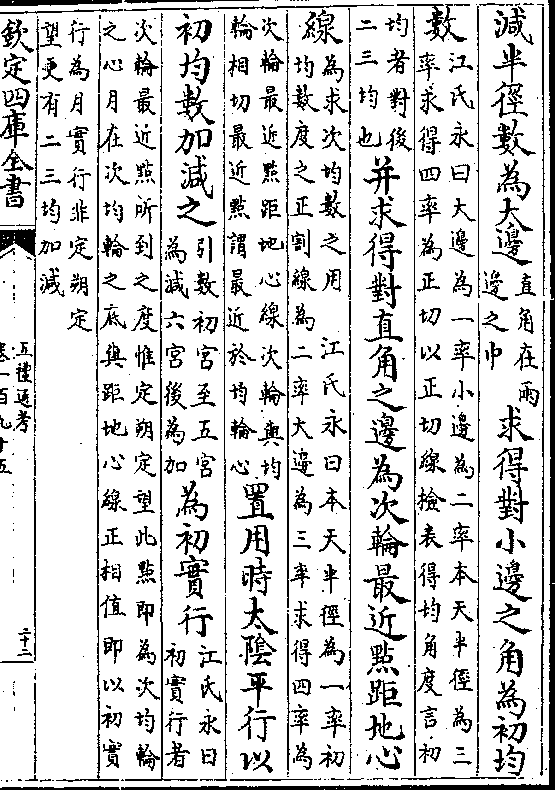 減半徑數為大邊直角在兩
邊之中
求得對小邊之角為初均
數江氏永曰大邊為一率小邊為二率本天半徑為三
率求得四率為正切以正切線檢表得均角度言初
均者對後
二三均也
并求得對直角之邊為次輪最近㸃距地心
線為求次均數之用　江氏永曰本天半徑為一率初
均數度之正割線為二率大邊為三率求得四率為
次輪最近㸃距地心線次輪與均
輪相切最近㸃謂最近於均輪心
置用時太陰平行以
初均數加減之引數初宮至五宮
為減六宮後為加
為初實行江氏永曰
初實行者
次輪最近㸃所到之度惟定朔定望此㸃即為次均輪
之心月在次均輪之底與距地心線正相值即以初實
行為月實行非定朔定
望更有二三均加減
欽定四庫全書
五禮通考
卷一百九十五
二十二